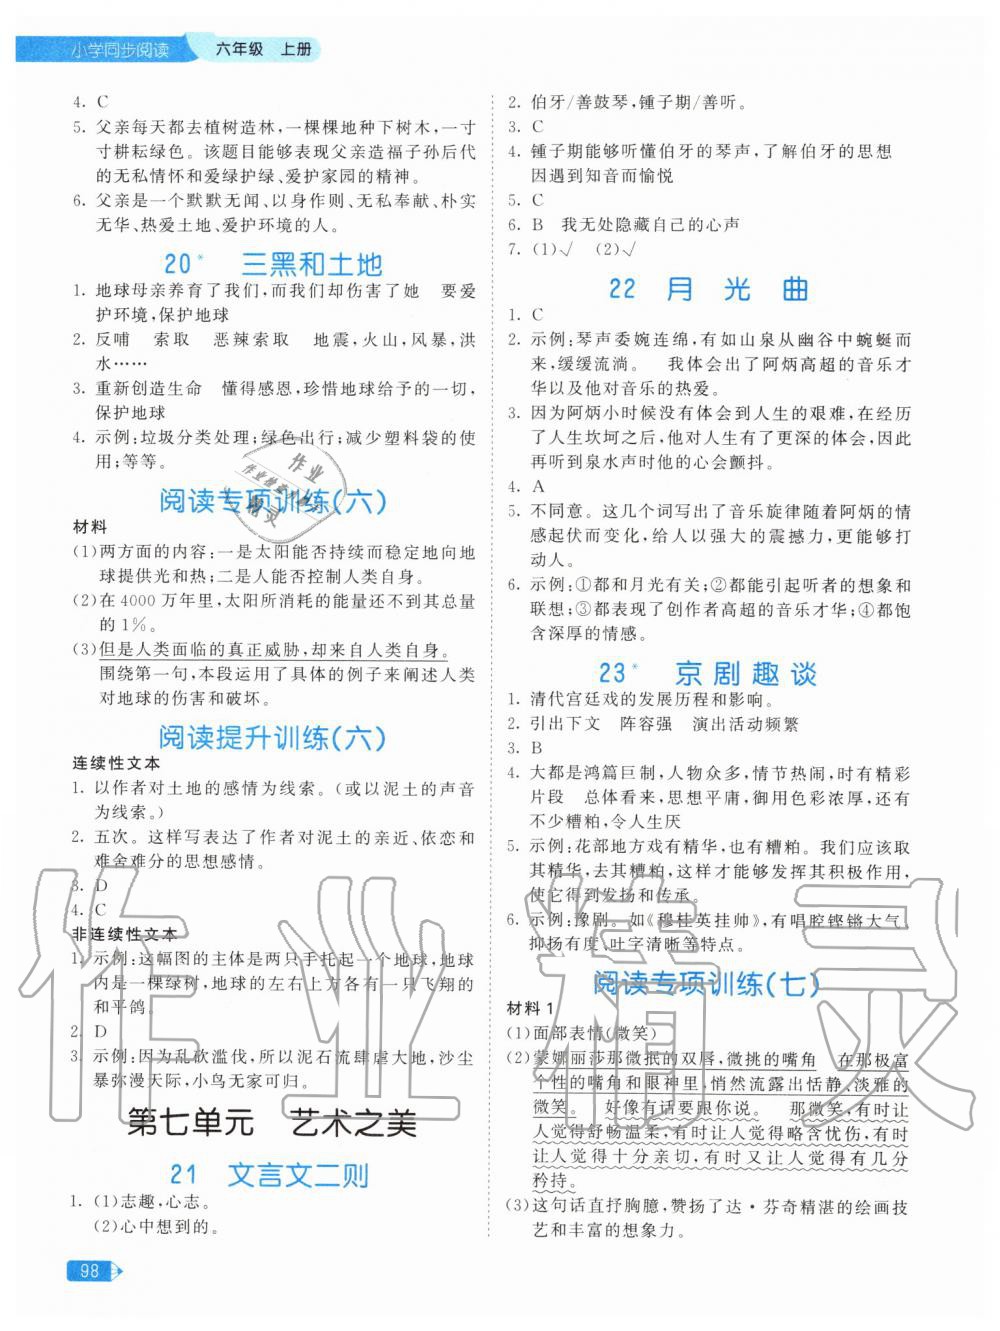 小学同步阅读 六年级 上册
4. C
5. 父亲每天都去植树造林,一棵棵地种下树木,一寸
寸耕耘绿色。该题目能够表现父亲造福子孙后代
的无私情怀和爱绿护绿、爱护家园的精神。
6. 父亲是一个默默无闻、以身作则、无私奉献、朴实
无华、热爱土地、爱护环境的人。
20* 三黑和土地
1. 地球母亲养育了我们,而我们却伤害了她 要爱
护环境,保护地球
2. 反哺 索取 恶辣索取 地震,火山,风暴,洪
水……
3. 重新创造生命 懂得感恩,珍惜地球给予的一切,
保护地球
4. 示例:垃圾分类处理;绿色出行;减少塑料袋的使
用;等等。
阅读专项训练(六)
材料
(1)两方面的内容:一是太阳能否持续而稳定地向地
球提供光和热;二是人能否控制人类自身。
(2)在 4000 万年里,太阳所消耗的能量还不到其总量
的 1%。
(3)但是人类面临的真正威胁,却来自人类自身。
围绕第一句,本段运用了具体的例子来阐述人类
对地球的伤害和破坏。
阅读提升训练(六)
连续性文本
1. 以作者对土地的感情为线索。(或以泥土的声音
为线索。)
2. 五次。这样写表达了作者对泥土的亲近、依恋和
难舍难分的思想感情。
3. D
4. C
非连续性文本
1. 示例:这幅图的主体是两只手托起一个地球,地球
内是一棵绿树,地球的左右上方各有一只飞翔的
和平鸽。
2. D
3. 示例:因为乱砍滥伐,所以泥石流肆虐大地,沙尘
暴弥漫天际,小鸟无家可归。
第七单元 艺术之美
21 文言文二则
1. (1)志趣,心志。
(2)心中想到的。
2. 伯牙/善鼓琴,锺子期/善听。
3. C
4. 锺子期能够听懂伯牙的琴声,了解伯牙的思想
因遇到知音而愉悦
5. C
6. B 我无处隐藏自己的心声
7. (1)√ (2)√
22 月光曲
1. C
2. 示例:琴声委婉连绵,有如山泉从幽谷中蜿蜒而
来,缓缓流淌。 我体会出了阿炳高超的音乐才
华以及他对音乐的热爱。
3. 因为阿炳小时候没有体会到人生的艰难,在经历
了人生坎坷之后,他对人生有了更深的体会,因此
再听到泉水声时他的心会颤抖。
4. A
5. 不同意。这几个词写出了音乐旋律随着阿炳的情
感起伏而变化,给人以强大的震撼力,更能够打
动人。
6. 示例:①都和月光有关;②都能引起听者的想象和
联想;③都表现了创作者高超的音乐才华;④都饱
含深厚的情感。
23* 京剧趣谈
1. 清代宫廷戏的发展历程和影响。
2. 引出下文 阵容强 演出活动频繁
3. B
4. 大都是鸿篇巨制,人物众多,情节热闹,时有精彩
片段 总体看来,思想平庸,御用色彩浓厚,还有
不少糟粕,令人生厌
5. 示例:花部地方戏有精华,也有糟粕。我们应该取
其精华,去其糟粕,这样才能够发挥其积极作用,
使它得到发扬和传承。
6. 示例:豫剧。如《穆桂英挂帅》,有唱腔铿锵大气、
抑扬有度、吐字清晰等特点。
阅读专项训练(七)
材料 1
(1)面部表情(微笑)
(2)蒙娜丽莎那微抿的双唇,微挑的嘴角 在那极富
个性的嘴角和眼神里,悄然流露出恬静、淡雅的
微笑。 好像有话要跟你说。 那微笑,有时让
人觉得舒畅温柔,有时让人觉得略含忧伤,有时
让人觉得十分亲切,有时又让人觉得有几分
矜持。
(3)这句话直抒胸臆,赞扬了达·芬奇精湛的绘画技
艺和丰富的想象力。
98
作业精灵